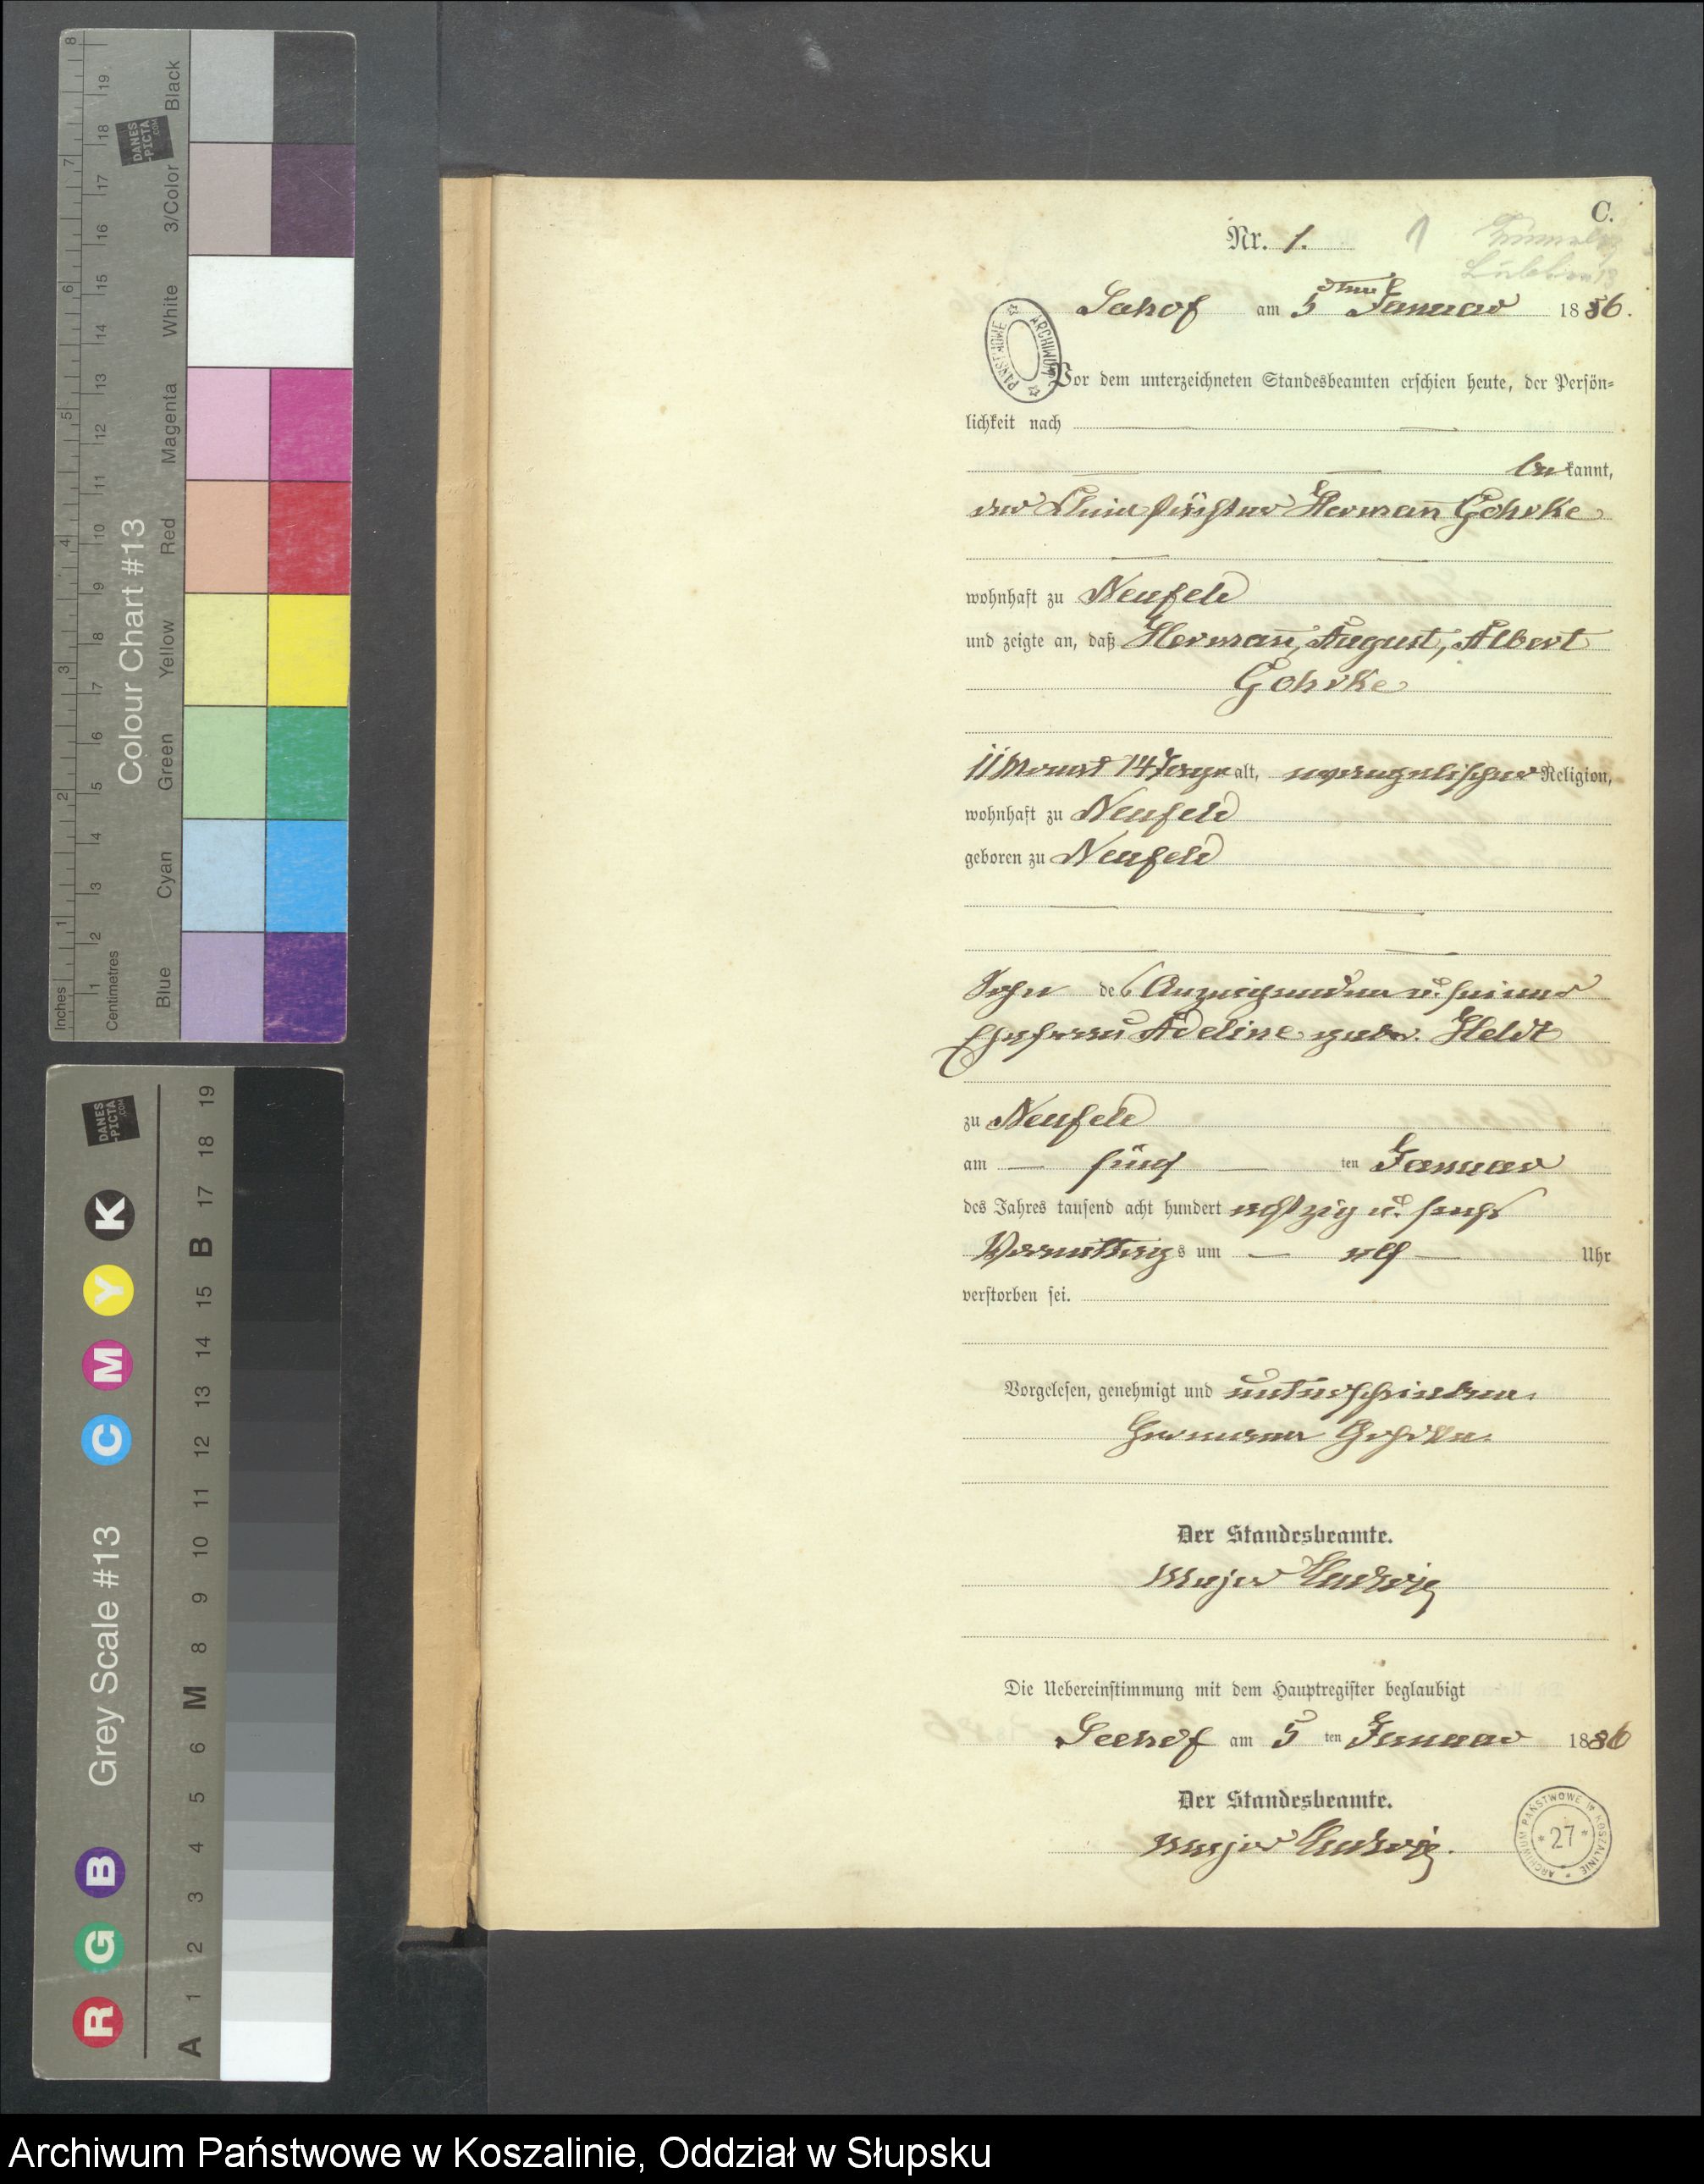 8
7
6
5
4
3
2
1
Inches
19
18
17
16
15
14
13
12
11
10
9
8
7
6
5
4
3
2
1
Centimetres
DANES
-PICTA
.COM
Colour Chart #13
Black
3/Color
White
Magenta
Red
Yellow
Green
Cyan
Blue
DANES
-PICTA
.COM
Grey Scale #13
R G B C M Y K
A 1 2 3 4 5 6 M 8 9 10 11 12 13 14 15 B 17 18 19
C.
Nr. 1. 1
Seehof am 5ten Januar 1886.
ARCHIWUM PAŃSTWOWE
Vor dem unterzeichneten Standesbeamten erschien heute, der Persön=
lichkeit nach
bekannt,
der Kleinpächter Herman̄ Gohrke
wohnhaft zu Neufeld
und zeigte an, daß Herman̄, August, Albert
Gohrke
11 Monat 14 Tage alt, evangelischer Religion,
wohnhaft zu Neufeld
geboren zu Neufeld
Sohn des Anzeigenden u. seiner
Ehefrau Adeline gebor. Heldt
zu Neufeld
am fünf ten Januar
des Jahres tausend acht hundert achtzig u. sechs
Vormittags um elf Uhr
verstorben sei.
Vorgelesen, genehmigt und unterschrieben.
Hermann Gohrke.
Der Standesbeamte.
Major Ludwig
Die Uebereinstimmung mit dem Hauptregister beglaubigt
Seehof am 5 ten Januar 1886
Der Standesbeamte.
Major Ludwig.
ARCHIWUM PAŃSTWOWE W KOSZALINIE
* 27 *
Archiwum Państwowe w Koszalinie, Oddział w Słupsku